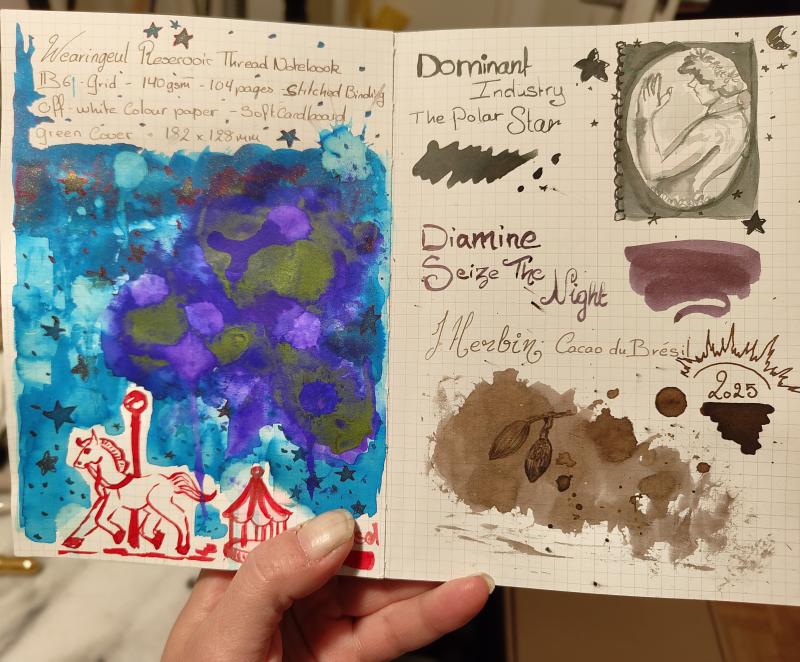 Wearingeul Reservoir Thread Notebook
B6 - Grid - 140gsm - 104 pages - Stitched Binding
Off-white Colour paper - Soft Cardboard
green Cover - 182 x 128mm
Dominant
Industry
The Polar Star
Diamine
Seize The
Night
J Herbin Cacao du Brésil
2025